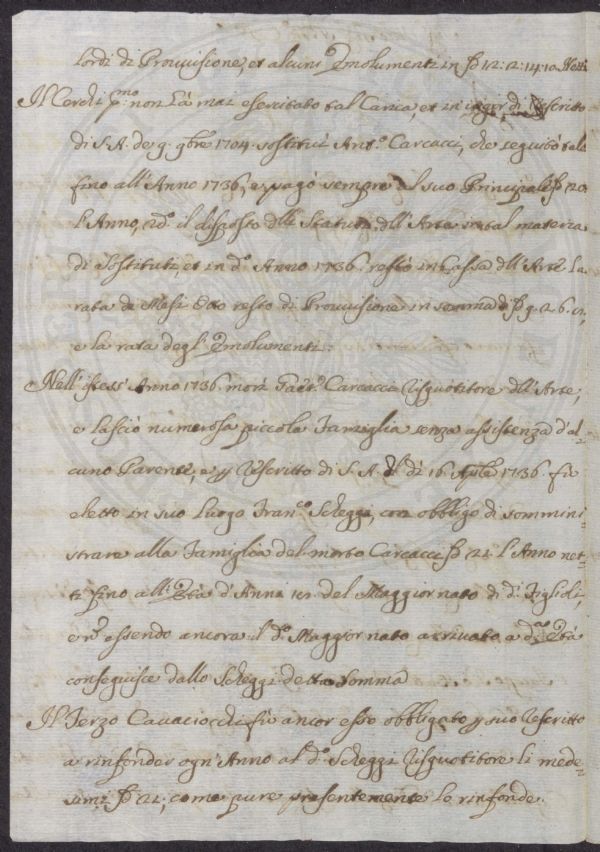 lordi di Provvisione, et alcuni Emolumenti in 12:12:14:10 Netti
Il Cerchi p.mo non hà mai esercitato tal Carica, et in
di S. A. de 9. 9bre 1704. sostituì Ant.o Carcacci, che seguitò tale
fino all'Anno 1736, e pagò sempre al suo Principale 20
l'Anno, il disposto dll Statuti dll'Arte in tal materia
di Sostituti, et in d.o Anno 1736. restò in Cassa dll'Arte la
rata de Mesi resto di Provvisione in somma d 9. 2. 6.
e la rata degl' Emolumenti.
Nell'istess' Anno 1736. morì Gaet.o Carcacci Risquotitore dll'Arte,
e lasciò numerosa piccola Famiglia senza assistenza d'al=
cuno Parente, e p Rescritto di S. A. R. de' 16. Aple 1736. fù
eletto in suo luogo Fran.co Scheggi, con obbligo di sommini=
strare alla Famiglia del morto Carcacci 21 l'Anno net=
ti fino all'Età d'Anni del Maggior nato di d.i Figlioli,
e non essendo ancora il d.o Maggior nato arrivato a d.a Età
conseguisce dallo Scheggi detta somma
Il Terzo che fù ancor esso obbligato p suo Rescritto
a rinfonder ogn'Anno al d.o Scheggi Risquotitore li mede=
simi 21, come pure presentemente le rinfonde.